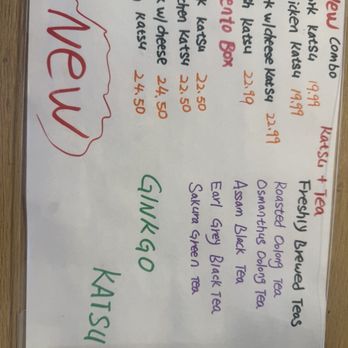 New Combo
Katsu + Tea
ork Katsu 19.99
icken Katsu 19.99
k w/cheese Katsu 22.99
sh Katsu 22.99
ento Box
k katsu 22.50
chen Katsu 22.50
k w/cheese 24.50
Katsu 24.50
NEW
Freshly Brewed Teas
Roasted Oolong Tea
Osmanthus Oolong Tea
Assam Black Tea
Earl Grey Black Tea
Sakura Green Tea
GINKGO
KATSU